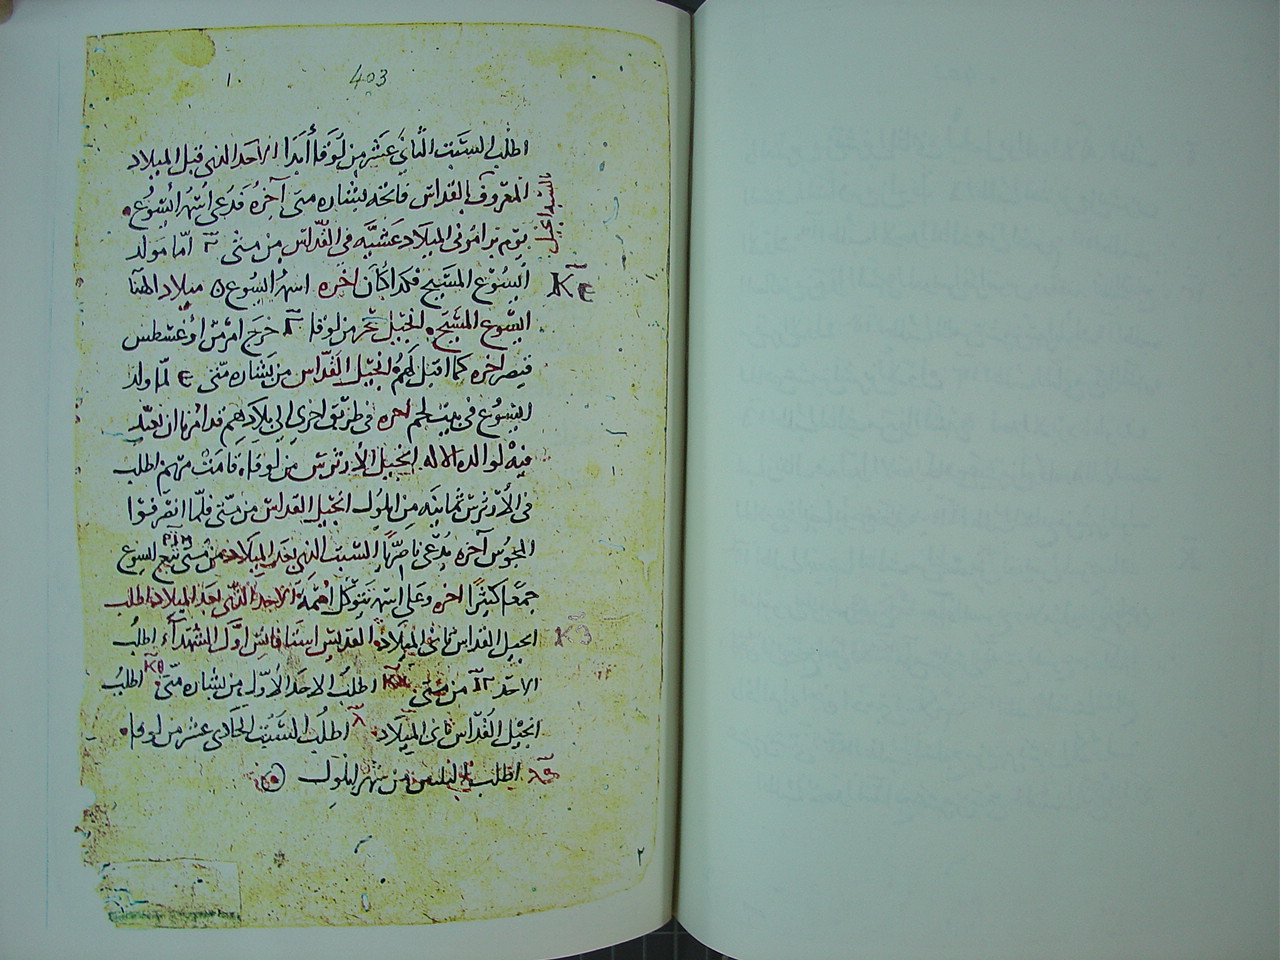 403
اطلب السبت الثاني عشر من لوقا أبدا الاحد الذي قبل الميلاد
المعروف بالقداس فاتحه بشاره متى آخره فدعى اسمه ايسوع
يوم برامون الميلاد عشيه في القداس من متى أما مولد
ايسوع المسيح فكذا كان اخره اسمه ايسوع ميلاد الهنا
ايسوع المسيح انجيل سحر من لوقا خرج امر من اوغسطس
قيصر اخره كما قيل لهم انجيل القداس من بشاره متى لما ولد
ايسوع في بيت لحم اخره في طريق اخرى الى بلادهم
فيه لوالدة الاله انجيل الأرثرس من لوقا قامت مريم اطلب
في الأرثرس ثمانيه من ايلول انجيل القداس من متى فلما انصرفوا
المجوس آخره يدعى ناصريا السبت الذي بعد الميلاد من متى تبع ايسوع
جمعا كثيرا اخره وعلى اسمه تتوكل الاحد الذي بعد الميلاد اطلب
انجيل القداس ثاني الميلاد القديس استفانس اول الشهداء اطلب
الاحد من متى اطلب الاحد الأول من بشاره متى اطلب
انجيل القداس ثاني الميلاد اطلب السبت الحادي عشر من لوقا
اطلب من شهر ايلول
٢